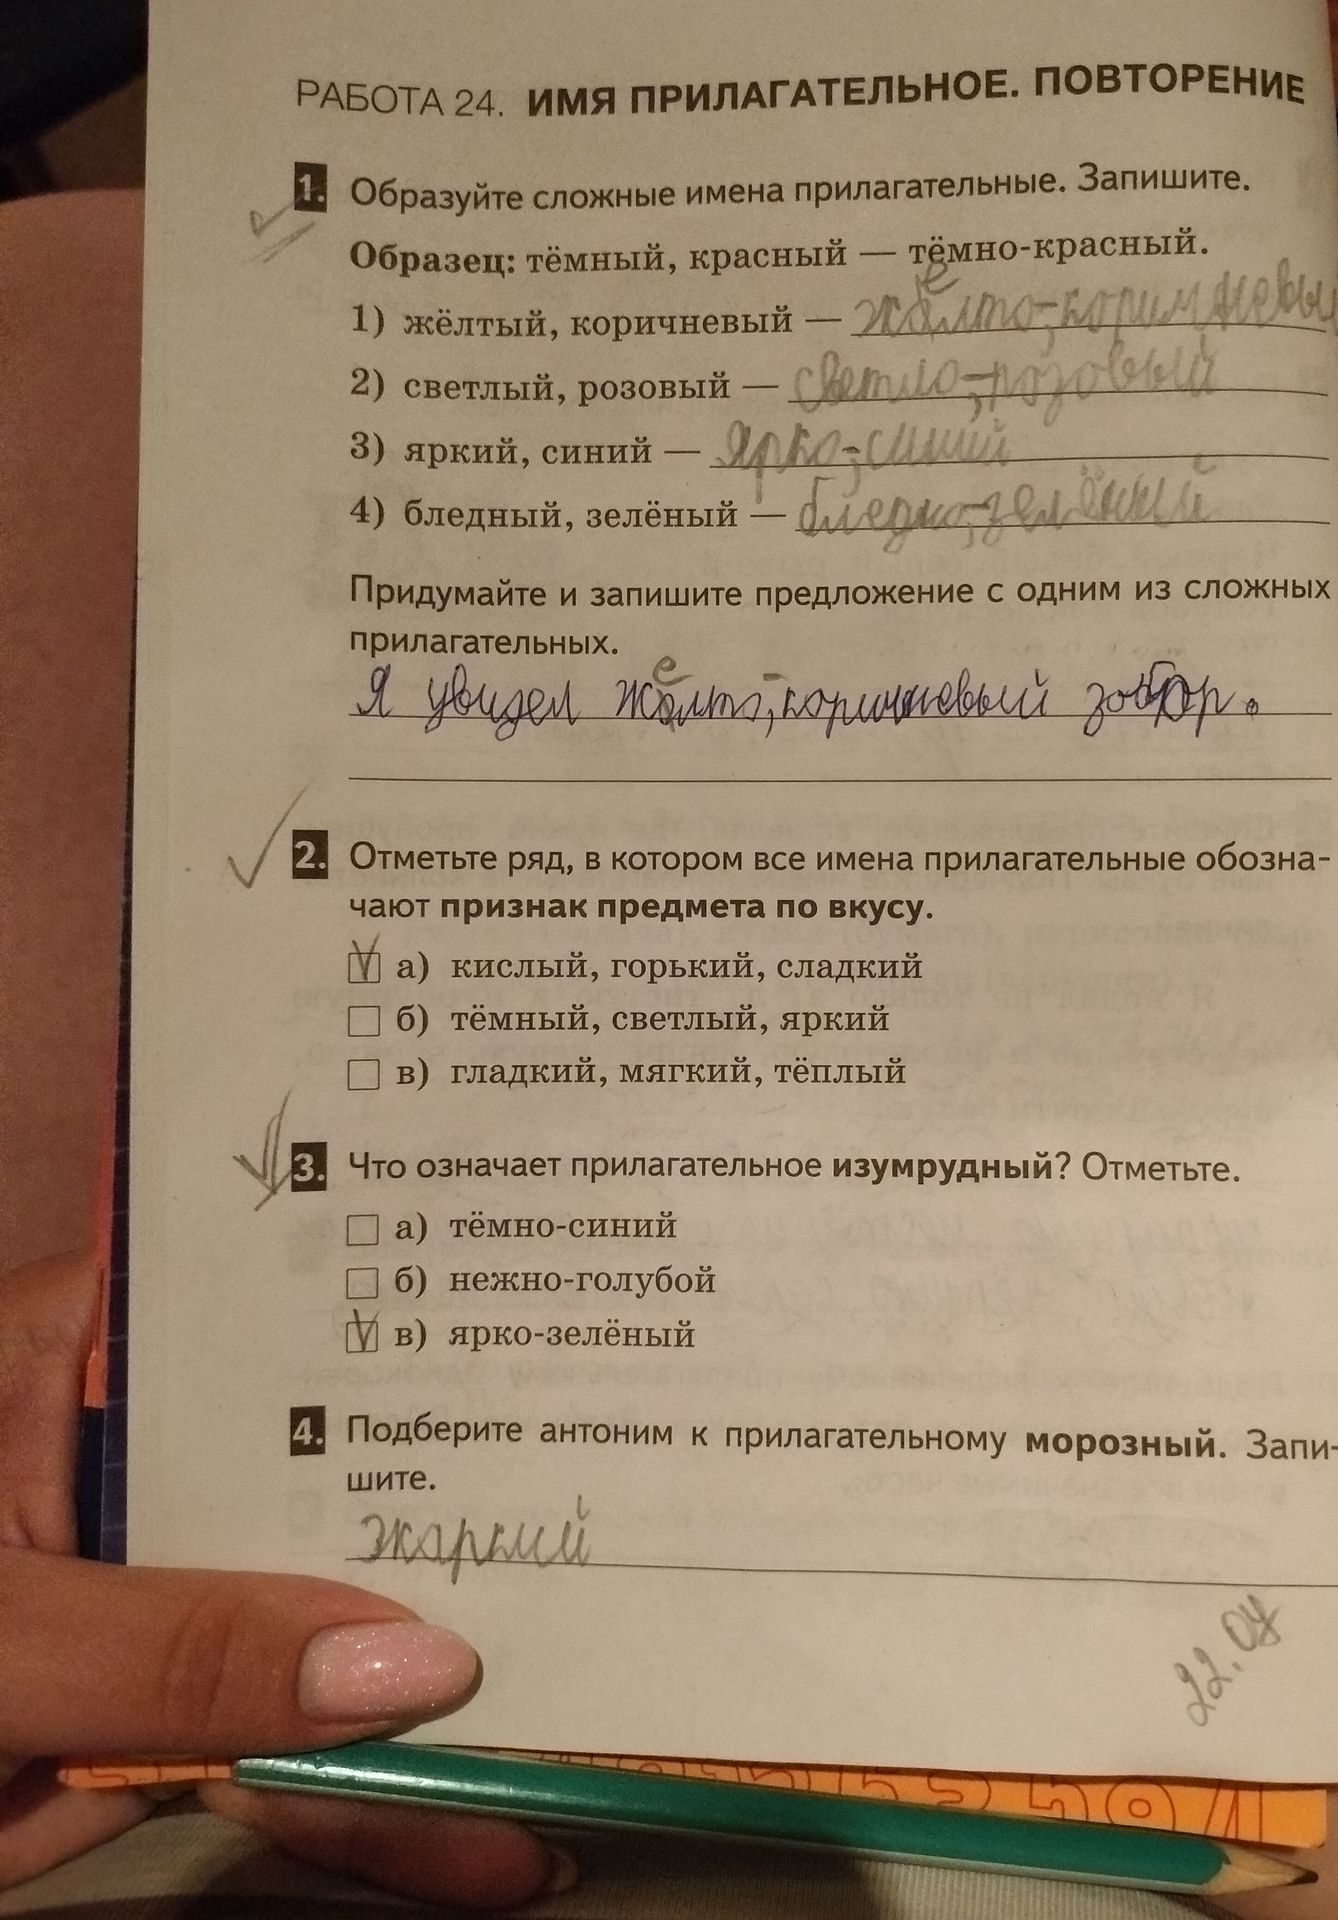 РАБОТА 24. ИМЯ ПРИЛАГАТЕЛЬНОЕ. ПОВТОРЕНИЕ
1. Образуйте сложные имена прилагательные. Запишите.
Образец: тёмный, красный — тёмно-красный.
1) жёлтый, коричневый — желто-коричневый
2) светлый, розовый — светло-розовый
3) яркий, синий — ярко-синий
4) бледный, зелёный — бледно-зелёный
Придумайте и запишите предложение с одним из сложных
прилагательных.
Я увидел желто-коричневый
2. Отметьте ряд, в котором все имена прилагательные обозна-
чают признак предмета по вкусу.
V а) кислый, горький, сладкий
б) тёмный, светлый, яркий
в) гладкий, мягкий, тёплый
3. Что означает прилагательное изумрудный? Отметьте.
а) тёмно-синий
б) нежно-голубой
V в) ярко-зелёный
4. Подберите антоним к прилагательному морозный. Запи-
шите.
жаркий